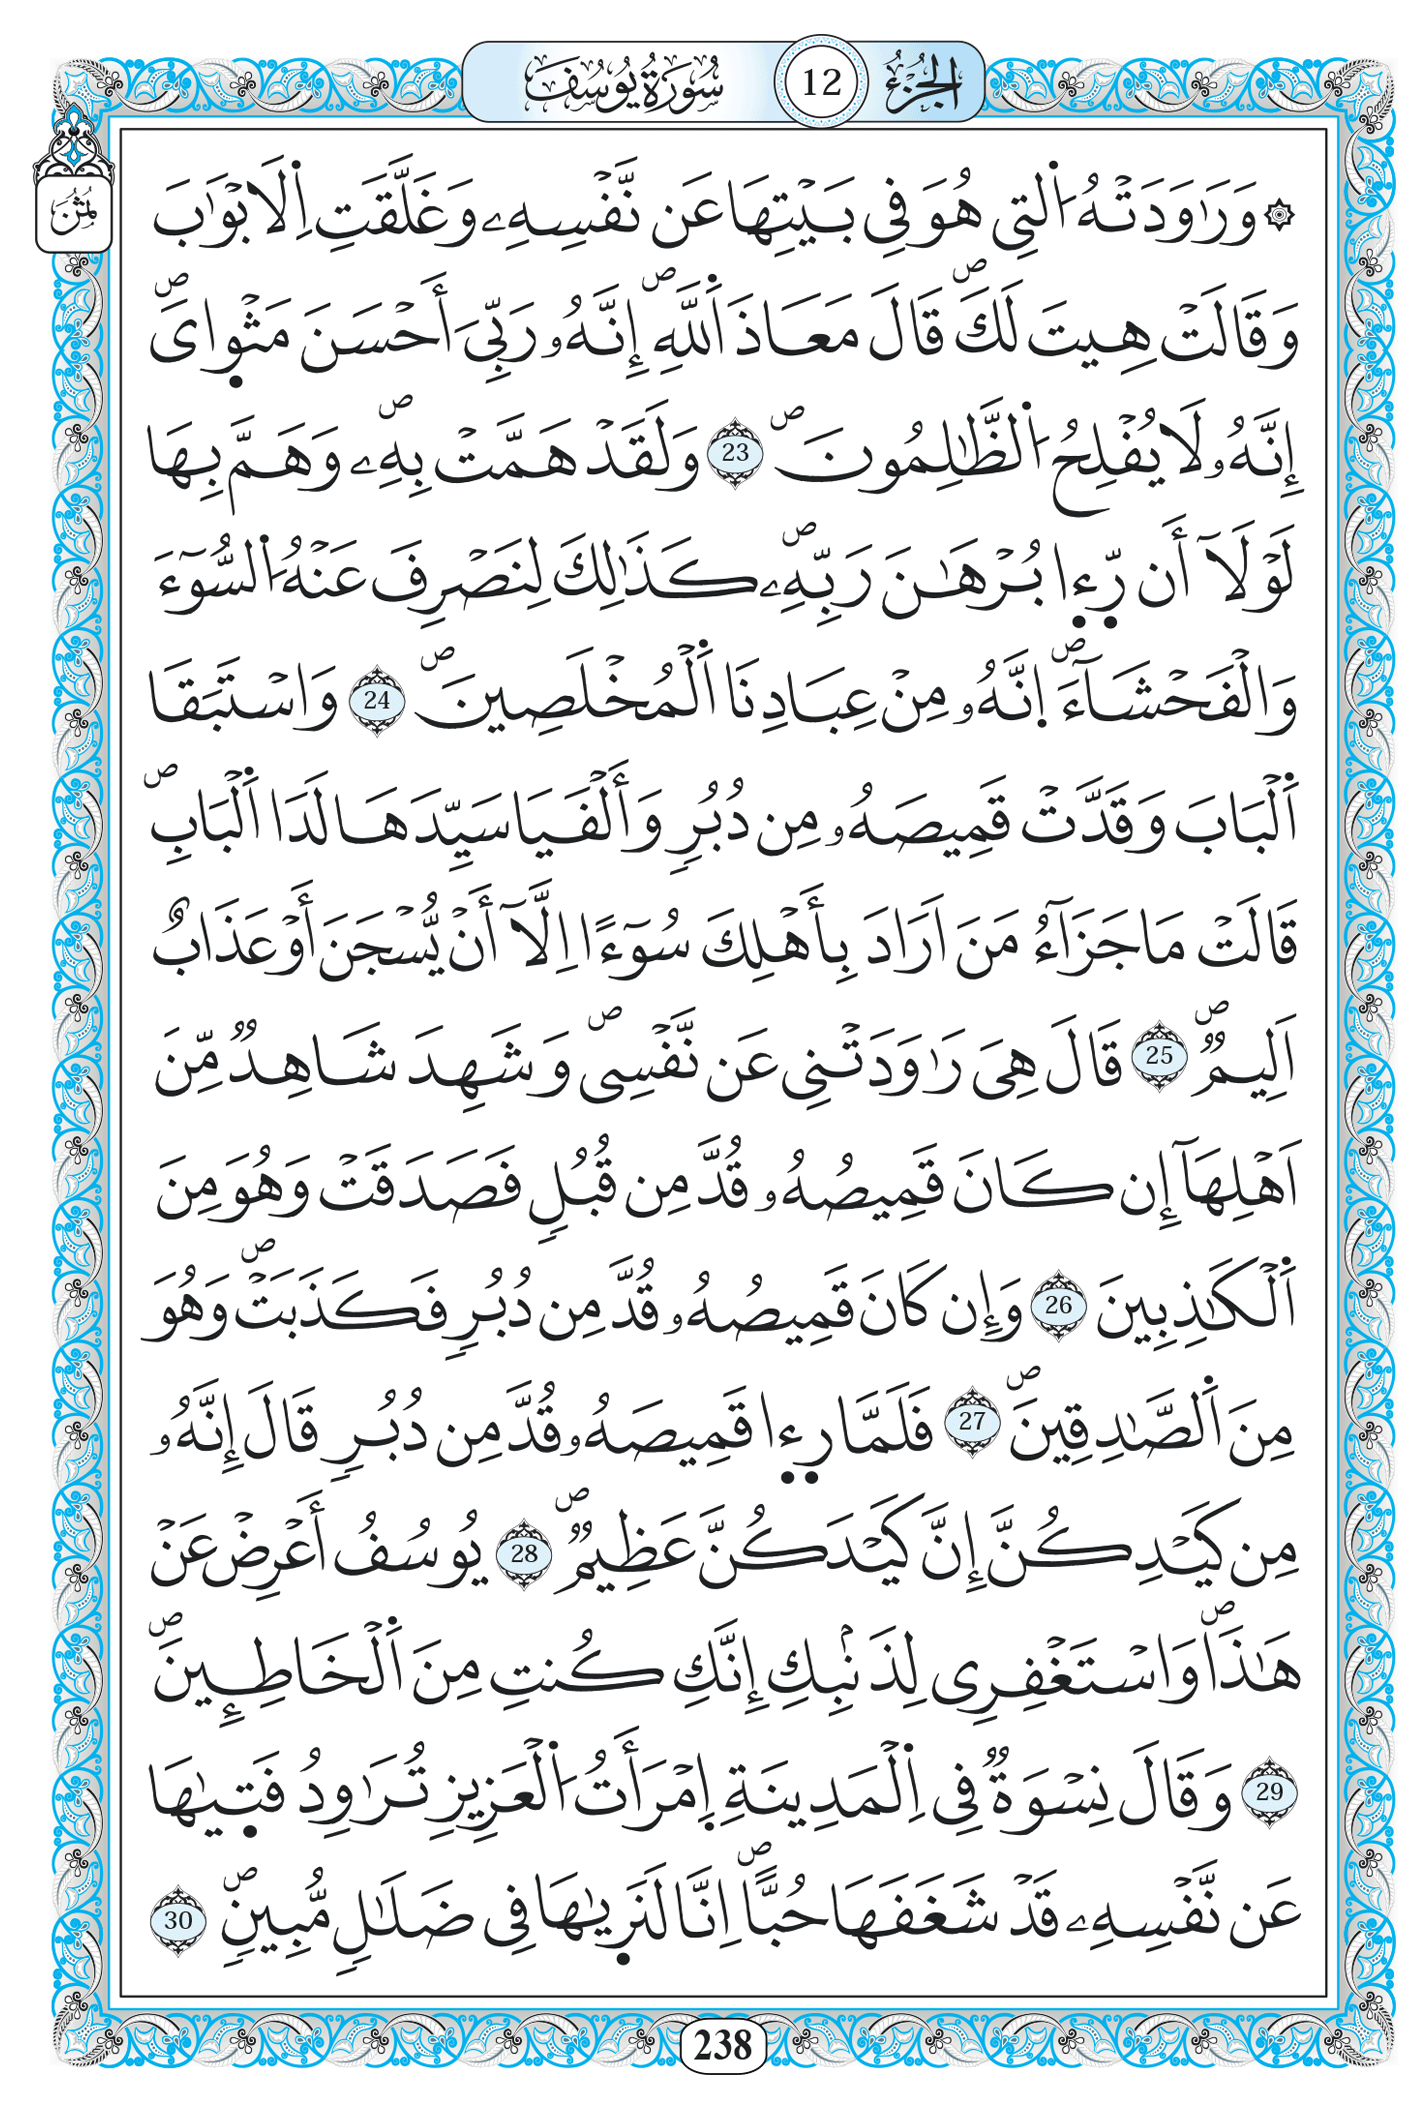 سُورَةُ يُوسُفَ 12 الجُزْءُ
ثُمُنٌ
۞ وَرَٰوَدَتْهُ اُ۬لتِي هُوَ فِي بَيْتِهَا عَن نَّفْسِهِۦ وَغَلَّقَتِ اِ۬لَابْوَٰبَ
وَقَالَتْ هِيتَ لَكَۖ قَالَ مَعَاذَ اَ۬للَّهِۖ إِنَّهُۥ رَبِّيَ أَحْسَنَ مَثْو۪ايَۖ
إِنَّهُۥ لَا يُفْلِحُ اُ۬لظَّٰلِمُونَۖ 23 وَلَقَدْ هَمَّتْ بِهِۦۖ وَهَمَّ بِهَا
لَوْلَآ أَن رّ۪ء۪ا بُرْهَٰنَ رَبِّهِۦۖ كَذَٰلِكَ لِنَصْرِفَ عَنْهُ اُ۬لسُّوٓءَ
وَالْفَحْشَآءَۖ اِنَّهُۥ مِنْ عِبَادِنَا اَ۬لْمُخْلَصِينَۖ 24 وَاسْتَبَقَا
اَ۬لْبَابَ وَقَدَّتْ قَمِيصَهُۥ مِن دُبُرٖ وَأَلْفَيَا سَيِّدَهَا لَدَا اَ۬لْبَابِۖ
قَالَتْ مَا جَزَآءُ مَنَ اَرَادَ بِأَهْلِكَ سُوٓءًا اِلَّآ أَنْ يُّسْجَنَ أَوْ عَذَابٌ
اَلِيمٞۖ 25 قَالَ هِيَ رَٰوَدَتْنِي عَن نَّفْسِيۖ وَشَهِدَ شَاهِدٞ مِّنَ
اَهْلِهَآ إِن كَانَ قَمِيصُهُۥ قُدَّ مِن قُبُلٖ فَصَدَقَتْ وَهُوَ مِنَ
اَ۬لْكَٰذِبِينَ 26 وَإِن كَانَ قَمِيصُهُۥ قُدَّ مِن دُبُرٖ فَكَذَبَتْۖ وَهُوَ
مِنَ اَ۬لصَّٰدِقِينَۖ 27 فَلَمَّا ر۪ء۪ا قَمِيصَهُۥ قُدَّ مِن دُبُرٖ قَالَ إِنَّهُۥ
مِن كَيْدِكُنَّ إِنَّ كَيْدَكُنَّ عَظِيمٞۖ 28 يُوسُفُ أَعْرِضْ عَنْ
هَٰذَاۖ وَاسْتَغْفِرِي لِذَنۢبِكِ إِنَّكِ كُنتِ مِنَ اَ۬لْخَاطِـِٕينَۖ
29 وَقَالَ نِسْوَةٞ فِي اِ۬لْمَدِينَةِ اِ۪مْرَأَتُ اُ۬لْعَزِيزِ تُرَٰوِدُ فَت۪يٰهَا
عَن نَّفْسِهِۦ قَدْ شَغَفَهَا حُبّاًۖ اِنَّا لَنَر۪يٰهَا فِي ضَلَٰلٖ مُّبِينٖۖ 30
238